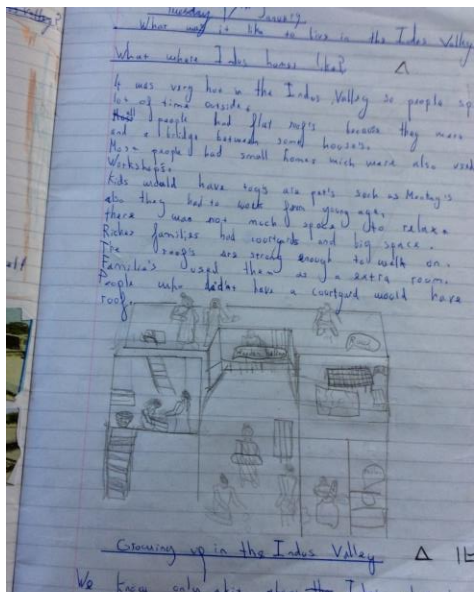 Valley?
Tuesday 17th January.
What was it like to live in the Indus Valley
What where Indus homes like?
It was very hot in the Indus Valley so people
lot of time outside.
people had flat roof's because they
and a bridge between some house's.
Most people had small homes wich were also used
Workshops.
Kids would have toy's are pet's such as Monkey's
also they had to work from young age.
there was not much space to relaxe
Richer families had courtyards and big space.
The roof's are strong enough to walk on.
Familie's used them as a extra room.
People who didn have a courtyard would have
roof.
Growing up in the Indus Valley
We know only